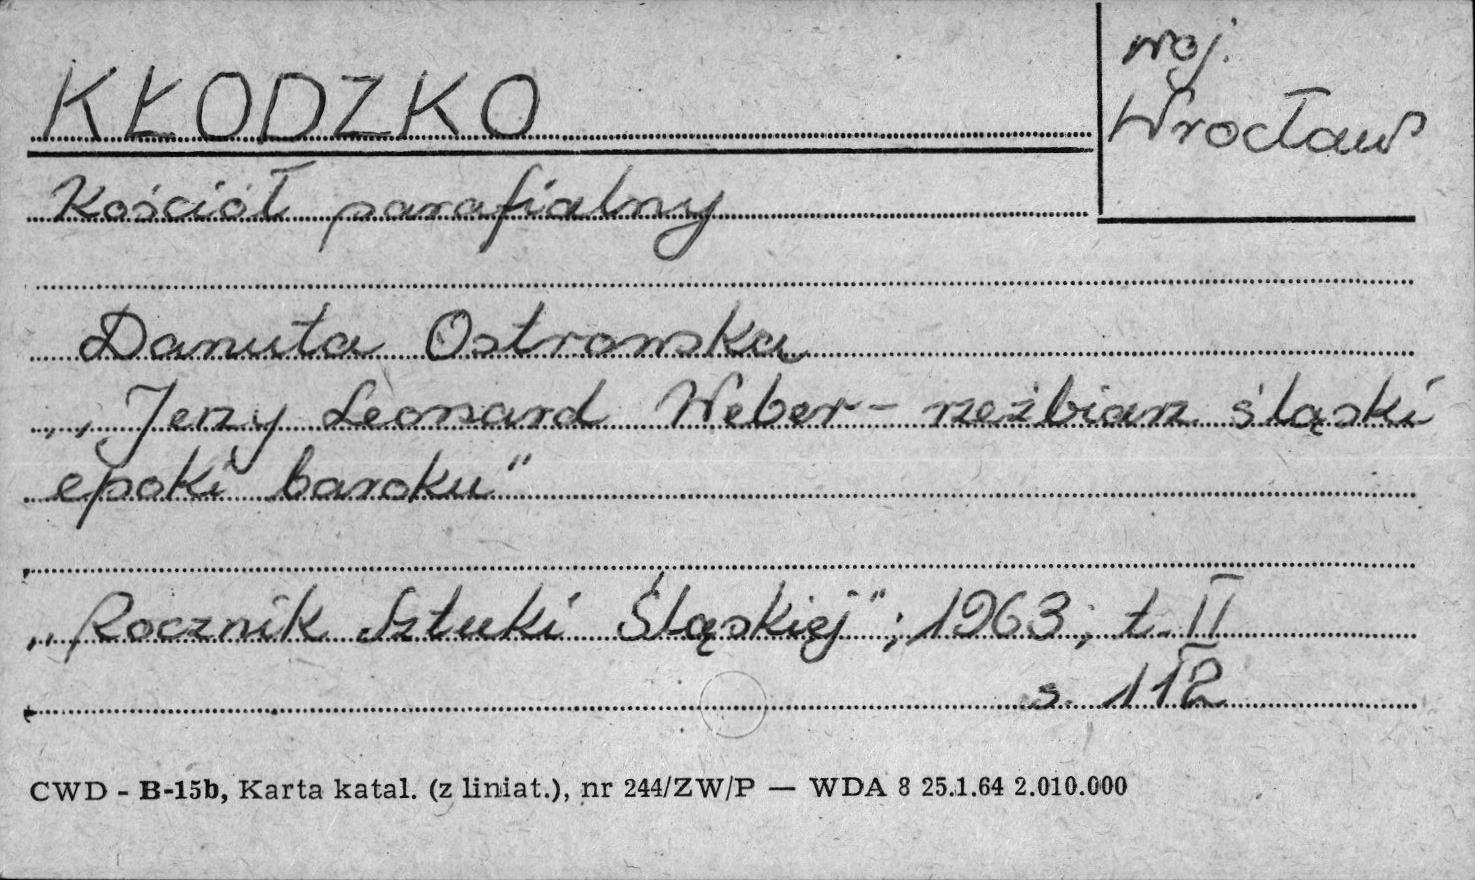 KŁODZKO
woj.
Wrocław
Kościół parafialny
Danuta Ostrowska
„Jerzy Leonard Weber - rzeźbiarz śląski
epoki baroku"
„Rocznik Sztuki Śląskiej"; 1963; t. II
s. 112
CWD - B-15b, Karta katal. (z liniat.), nr 244/ZW/P — WDA 8 25.1.64 2.010.000